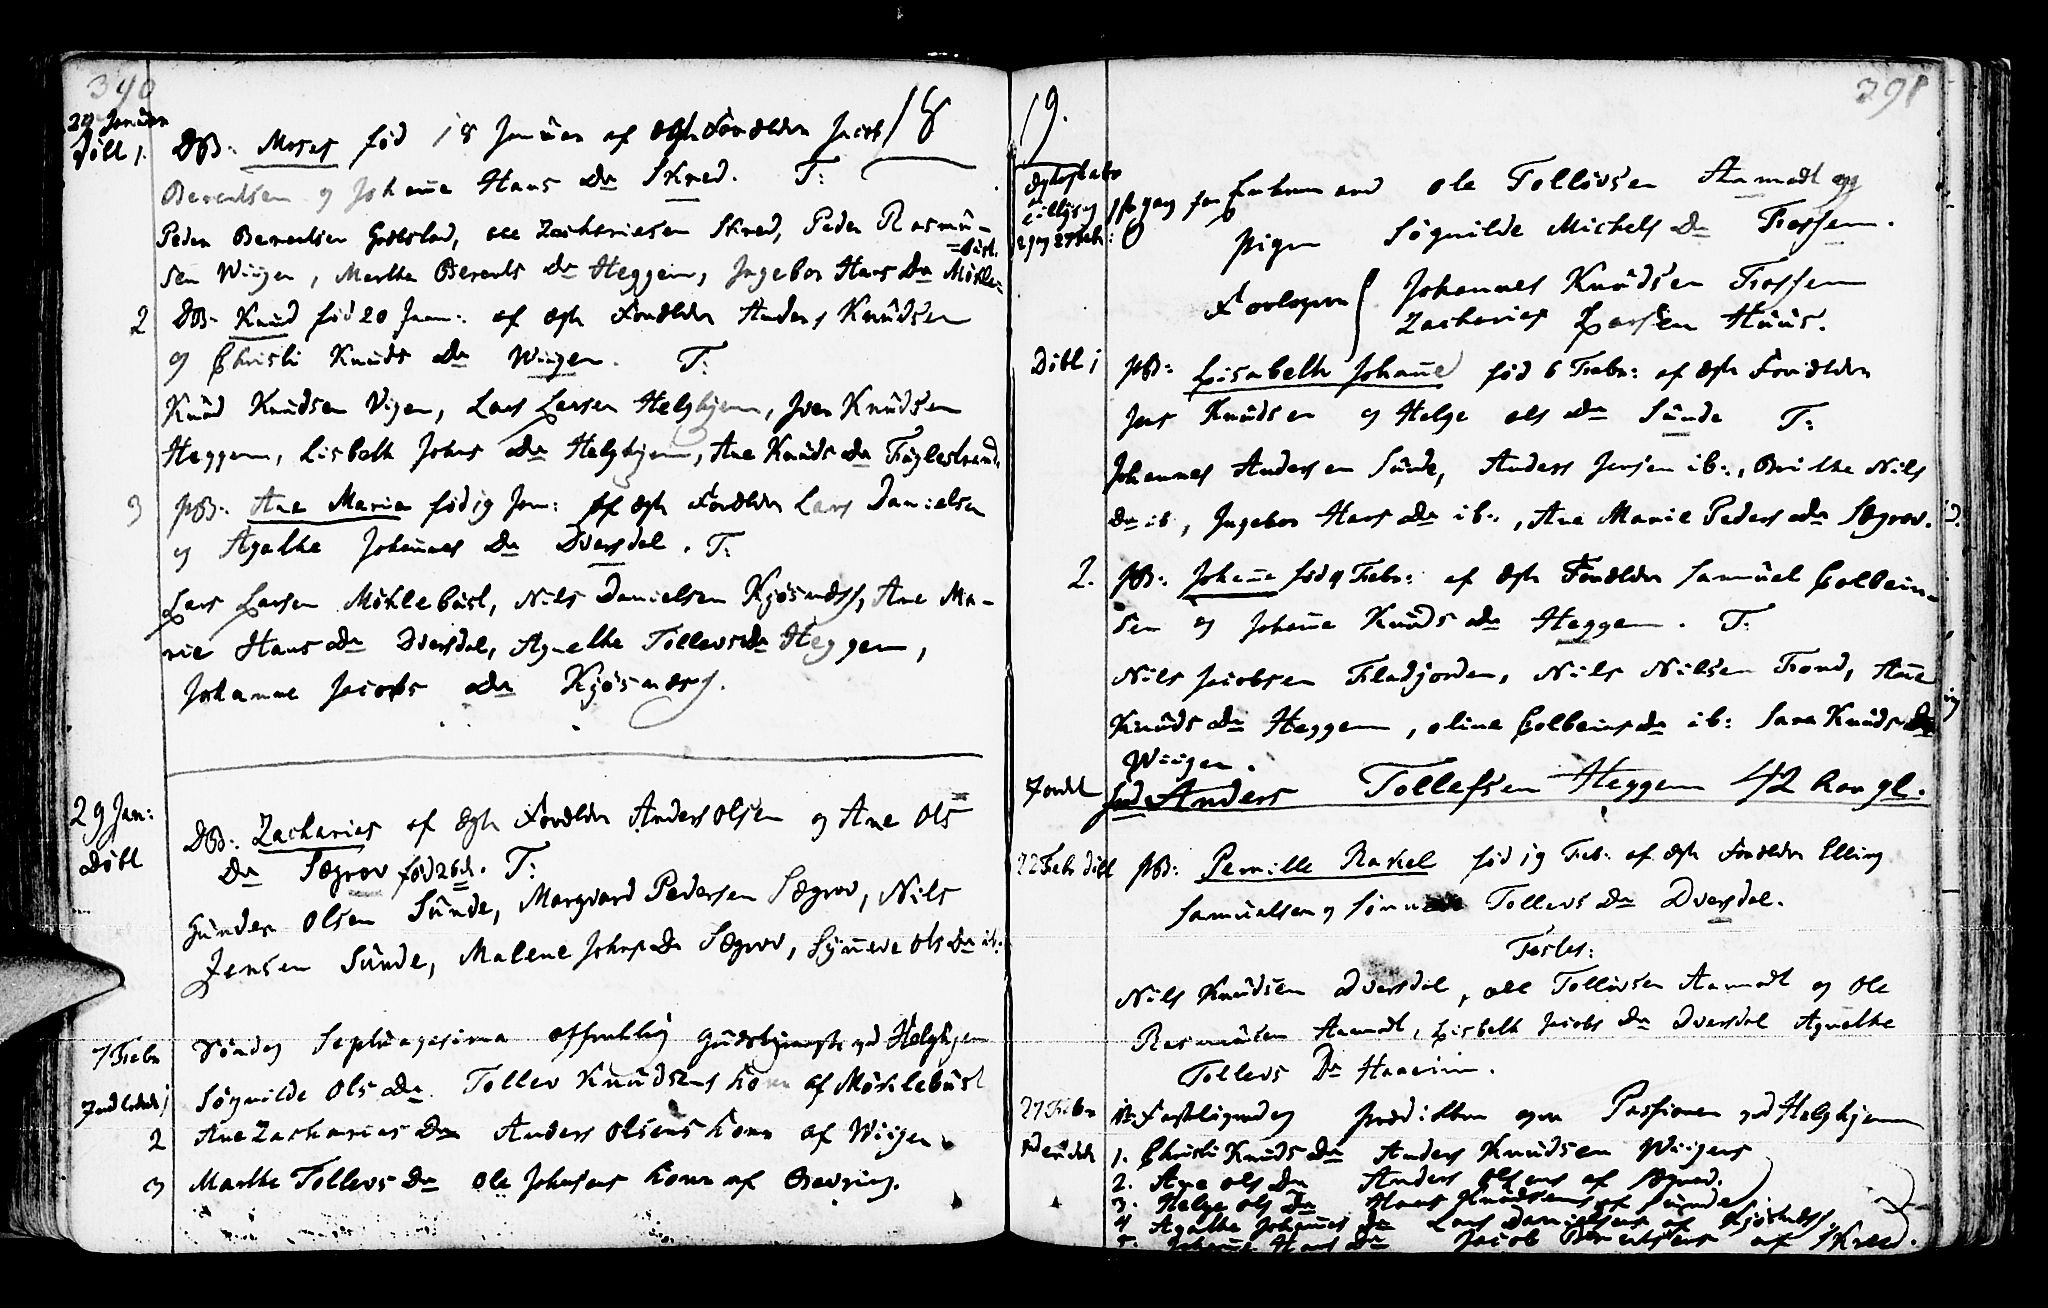 390
18
24 Januar
Döbt 1.
DB: Moses fød 18 Januar af Ægte Forældre Jacob
Berentsen og Johanne Hans Dr Skred. T:
Peder Berentsen Godlslad, ole Zachariesen Skred, Peder Rasmu-
sen Wiigen, Marthe Berents Dr Heggem, Ingebor Hans Dr Mökle-
büst.
2 DB. Knud fød 20 Janu: af ægte Forældre Anders Knudsen
og Christi Knuds Dr Wiigen. T:
Knud Knudsen Vigen, Lars Larsen Helghjem, Iver Knudsen
Heggem, Lisbeth Johns Dr Helghjem, Ane Knuds Dr Fuglestrand.
3 PB: Ane Marie fød 19 Jan: af ægte Forældre Lars Danielsen
og Agathe Johannes Dr Dversdal. T:
Lars Larsen Möklebüst, Nils Danielsen Kjösnæss, Ane Ma-
rie Hans Dr Dversdal, Agnethe Tollevs Dr Heggem,
Johanne Jacobs Dr Kjösnæss.
29 Jan:
Döbt
DB: Zacharies af Ægte Forældre Anders Olsen og Ane Ols
Dr Sægrov fød 26 d. T:
Gunder Olsen Sunde, Margvard Pedersen Sægrov, Nils
Jensen Sunde, Malene Johns Dr Sægrov, Synneve Ols Dr ib:
7 Febr Söndag Septuagesima offentlig Gudstjeneste ved Helghjem
Indledede 1 Sögnilde Ols Dr Tollev Knudsens Kone af Möklebüst
2 Ane Zacharies Dr Anders Olsens Kone af Wiigen.
3 Marthe Tollevs Dr Ole Johnsens Kone af Bevring.
391
19.
Ægteskabs
1ste gang for Enkemand Ole Tollevsen Aamodt og
Pigen Sögnilde Michels Dr Fossem.
Forlovere Johannes Knudsen Fossem
Zacharies Larsen Huus.
Döbt 1 PB: Lisabeth Johanne fød 6 Febr: af Ægte Forældre
Jens Knudsen og Helge Ols Dr Sunde T:
Johannes Andersen Sunde, Anders Jensen ib:, Brithe Nils
Dr ib, Ingebor Hans Dr ib:, Ane Marie Peders Dr Sægrov.
2. PB: Johanne fød 9 Febr: af Ægte Forældre Samuel Colbein-
sen og Johanne Knuds Dr Heggem. T:
Nils Jacobsen Fladjorden, Nils Nilsen Fond, Anne
Knuds Dr Heggem, Oline Colbeins Dr ib: Sara Knuds Dr
Wiigen.
Jordet Anders Tollefsen Heggem 42 Aar gl.
22 Febr döbt PB: Pernille Rakel fød 19 Feb: af Ægte Forældre Elling
Samuelsen og Tollevs Dr Dversdal.
Testes:
Nils Knudsen Dversdal, Ole Tollevsen Aamodt og Ole
Rasmusen Aamodt, Lisbeth Jacobs Dr Dversdal Agnethe
Tollevs Dr Haaheim.
27 Febr Fastesöndag prædiken over Passionen ved Helghjem
1. Christi Knuds Dr Anders Knudsen Wiigens
2. Ane Ols Dr Anders Olsens af Sægrov.
3. Helge Ols Dr Knudsens af Sunde
4 Agathe Johannes Dr Lars Danielsens af Kjösnæss
5. Johanne Hans Dr Jacob Berentsens af Skred.